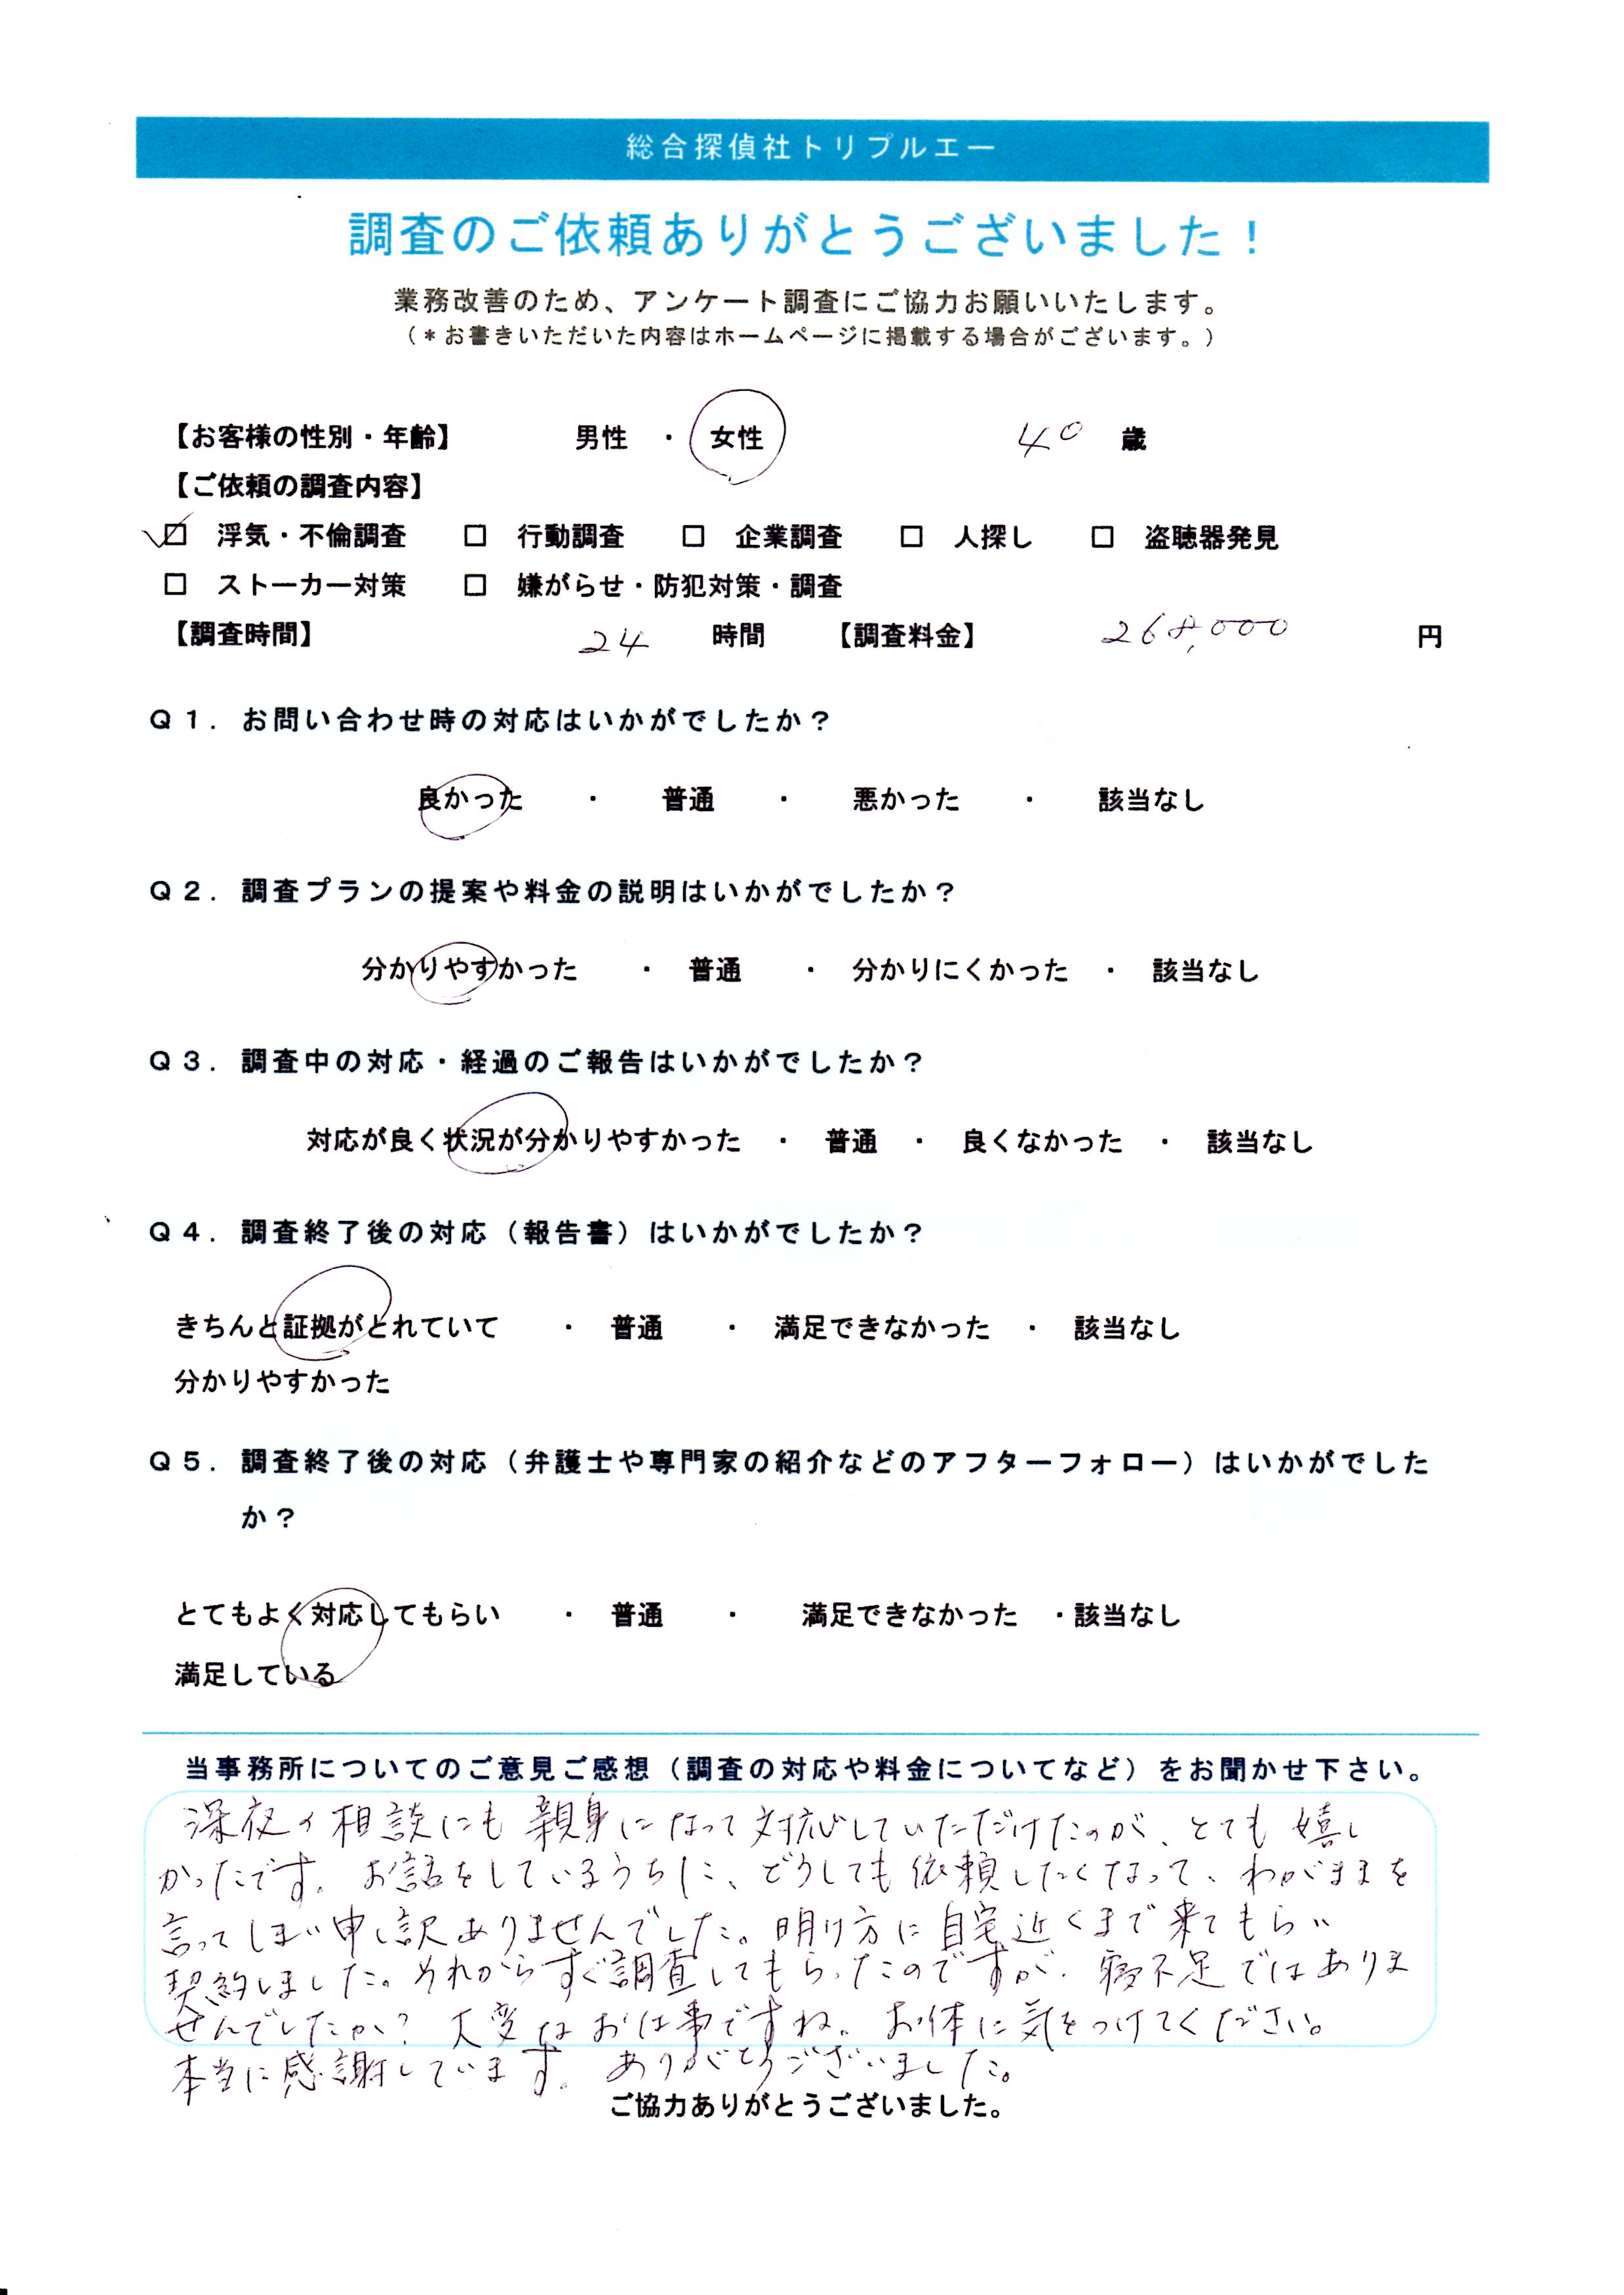 総合探偵社トリプルエー
調査のご依頼ありがとうございました！
業務改善のため、アンケート調査にご協力お願いいたします。
（＊お書きいただいた内容はホームページに掲載する場合がございます。）
【お客様の性別・年齢】 男性 ・ 女性 40 歳
【ご依頼の調査内容】
☑ 浮気・不倫調査 □ 行動調査 □ 企業調査 □ 人探し □ 盗聴器発見
□ ストーカー対策 □ 嫌がらせ・防犯対策・調査
【調査時間】 24 時間 【調査料金】 268,000 円
Ｑ１．お問い合わせ時の対応はいかがでしたか？
良かった ・ 普通 ・ 悪かった ・ 該当なし
Ｑ２．調査プランの提案や料金の説明はいかがでしたか？
分かりやすかった ・ 普通 ・ 分かりにくかった ・ 該当なし
Ｑ３．調査中の対応・経過のご報告はいかがでしたか？
対応が良く状況が分かりやすかった ・ 普通 ・ 良くなかった ・ 該当なし
Ｑ４．調査終了後の対応（報告書）はいかがでしたか？
きちんと証拠がとれていて ・ 普通 ・ 満足できなかった ・ 該当なし
分かりやすかった
Ｑ５．調査終了後の対応（弁護士や専門家の紹介などのアフターフォロー）はいかがでした
か？
とてもよく対応してもらい ・ 普通 ・ 満足できなかった ・該当なし
満足している
当事務所についてのご意見ご感想（調査の対応や料金についてなど）をお聞かせ下さい。
深夜の相談にも親身になって対応していただけたのが、とても嬉し
かったです。お話をしているうちに、どうしても依頼したくなって、わがままを
言ってしまい申し訳ありませんでした。明け方に自宅近くまで来てもらい
契約しました。それからすぐ調査してもらったのですが、寝不足ではありま
せんでしたか？大変なお仕事ですね。お体に気をつけてください。
本当に感謝しています。ありがとうございました。
ご協力ありがとうございました。